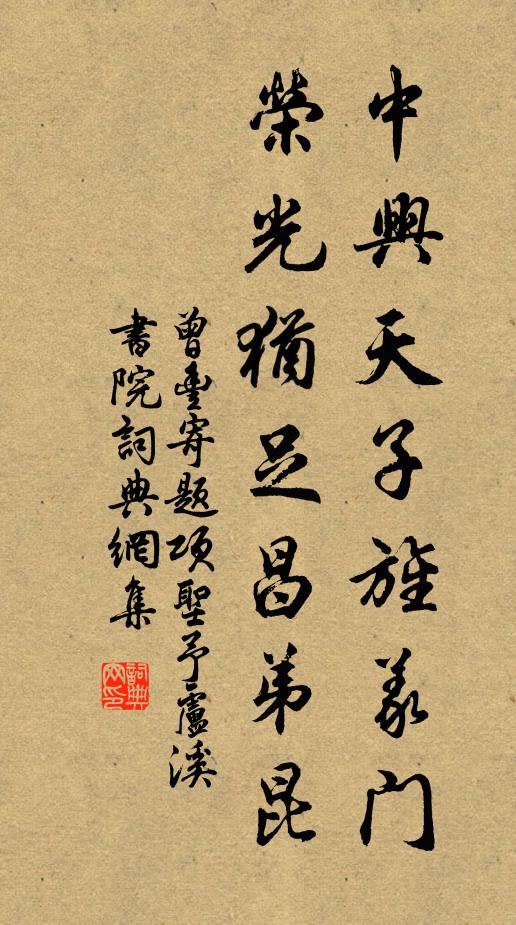 中興天子旌義門
榮光猶足昌弟昆
曾豐寄題項聖予盧溪
書院詞典網集
詞典网印